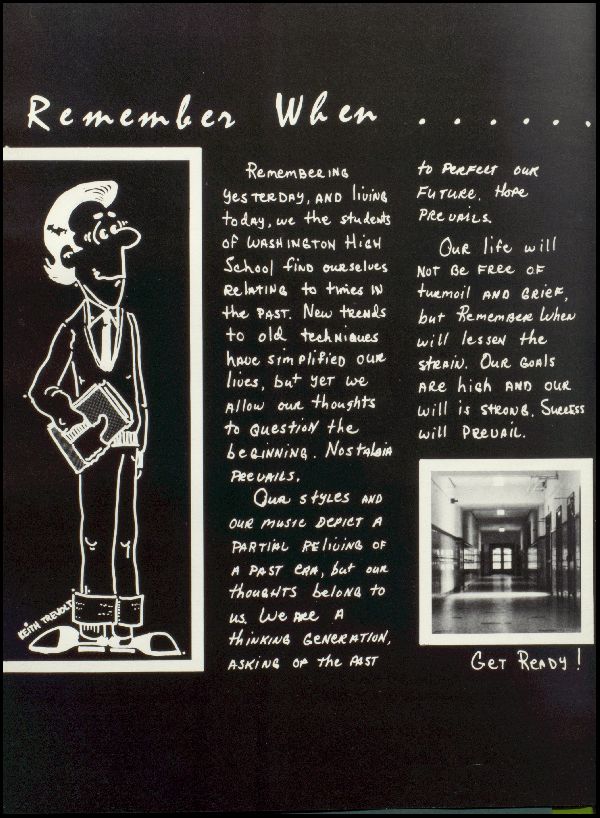 Remember When ......
Remembering
yesterday, and living
today, we the students
of Washington High
School find ourselves
relating to times in
the past. New trends
to old techniques
have simplified our
lives, but yet we
allow our thoughts
to question the
beginning. Nostalgia
prevails.
Our styles and
our music depict a
partial reliving of
a past era, but our
thoughts belong to
us. We are a
thinking generation,
asking of the past
to perfect our
future. Hope
prevails.
Our life will
not be free of
turmoil and grief,
but Remember When
will lessen the
strain. Our goals
are high and our
will is strong. Success
will prevail.
Get Ready!
Keith Trevolt